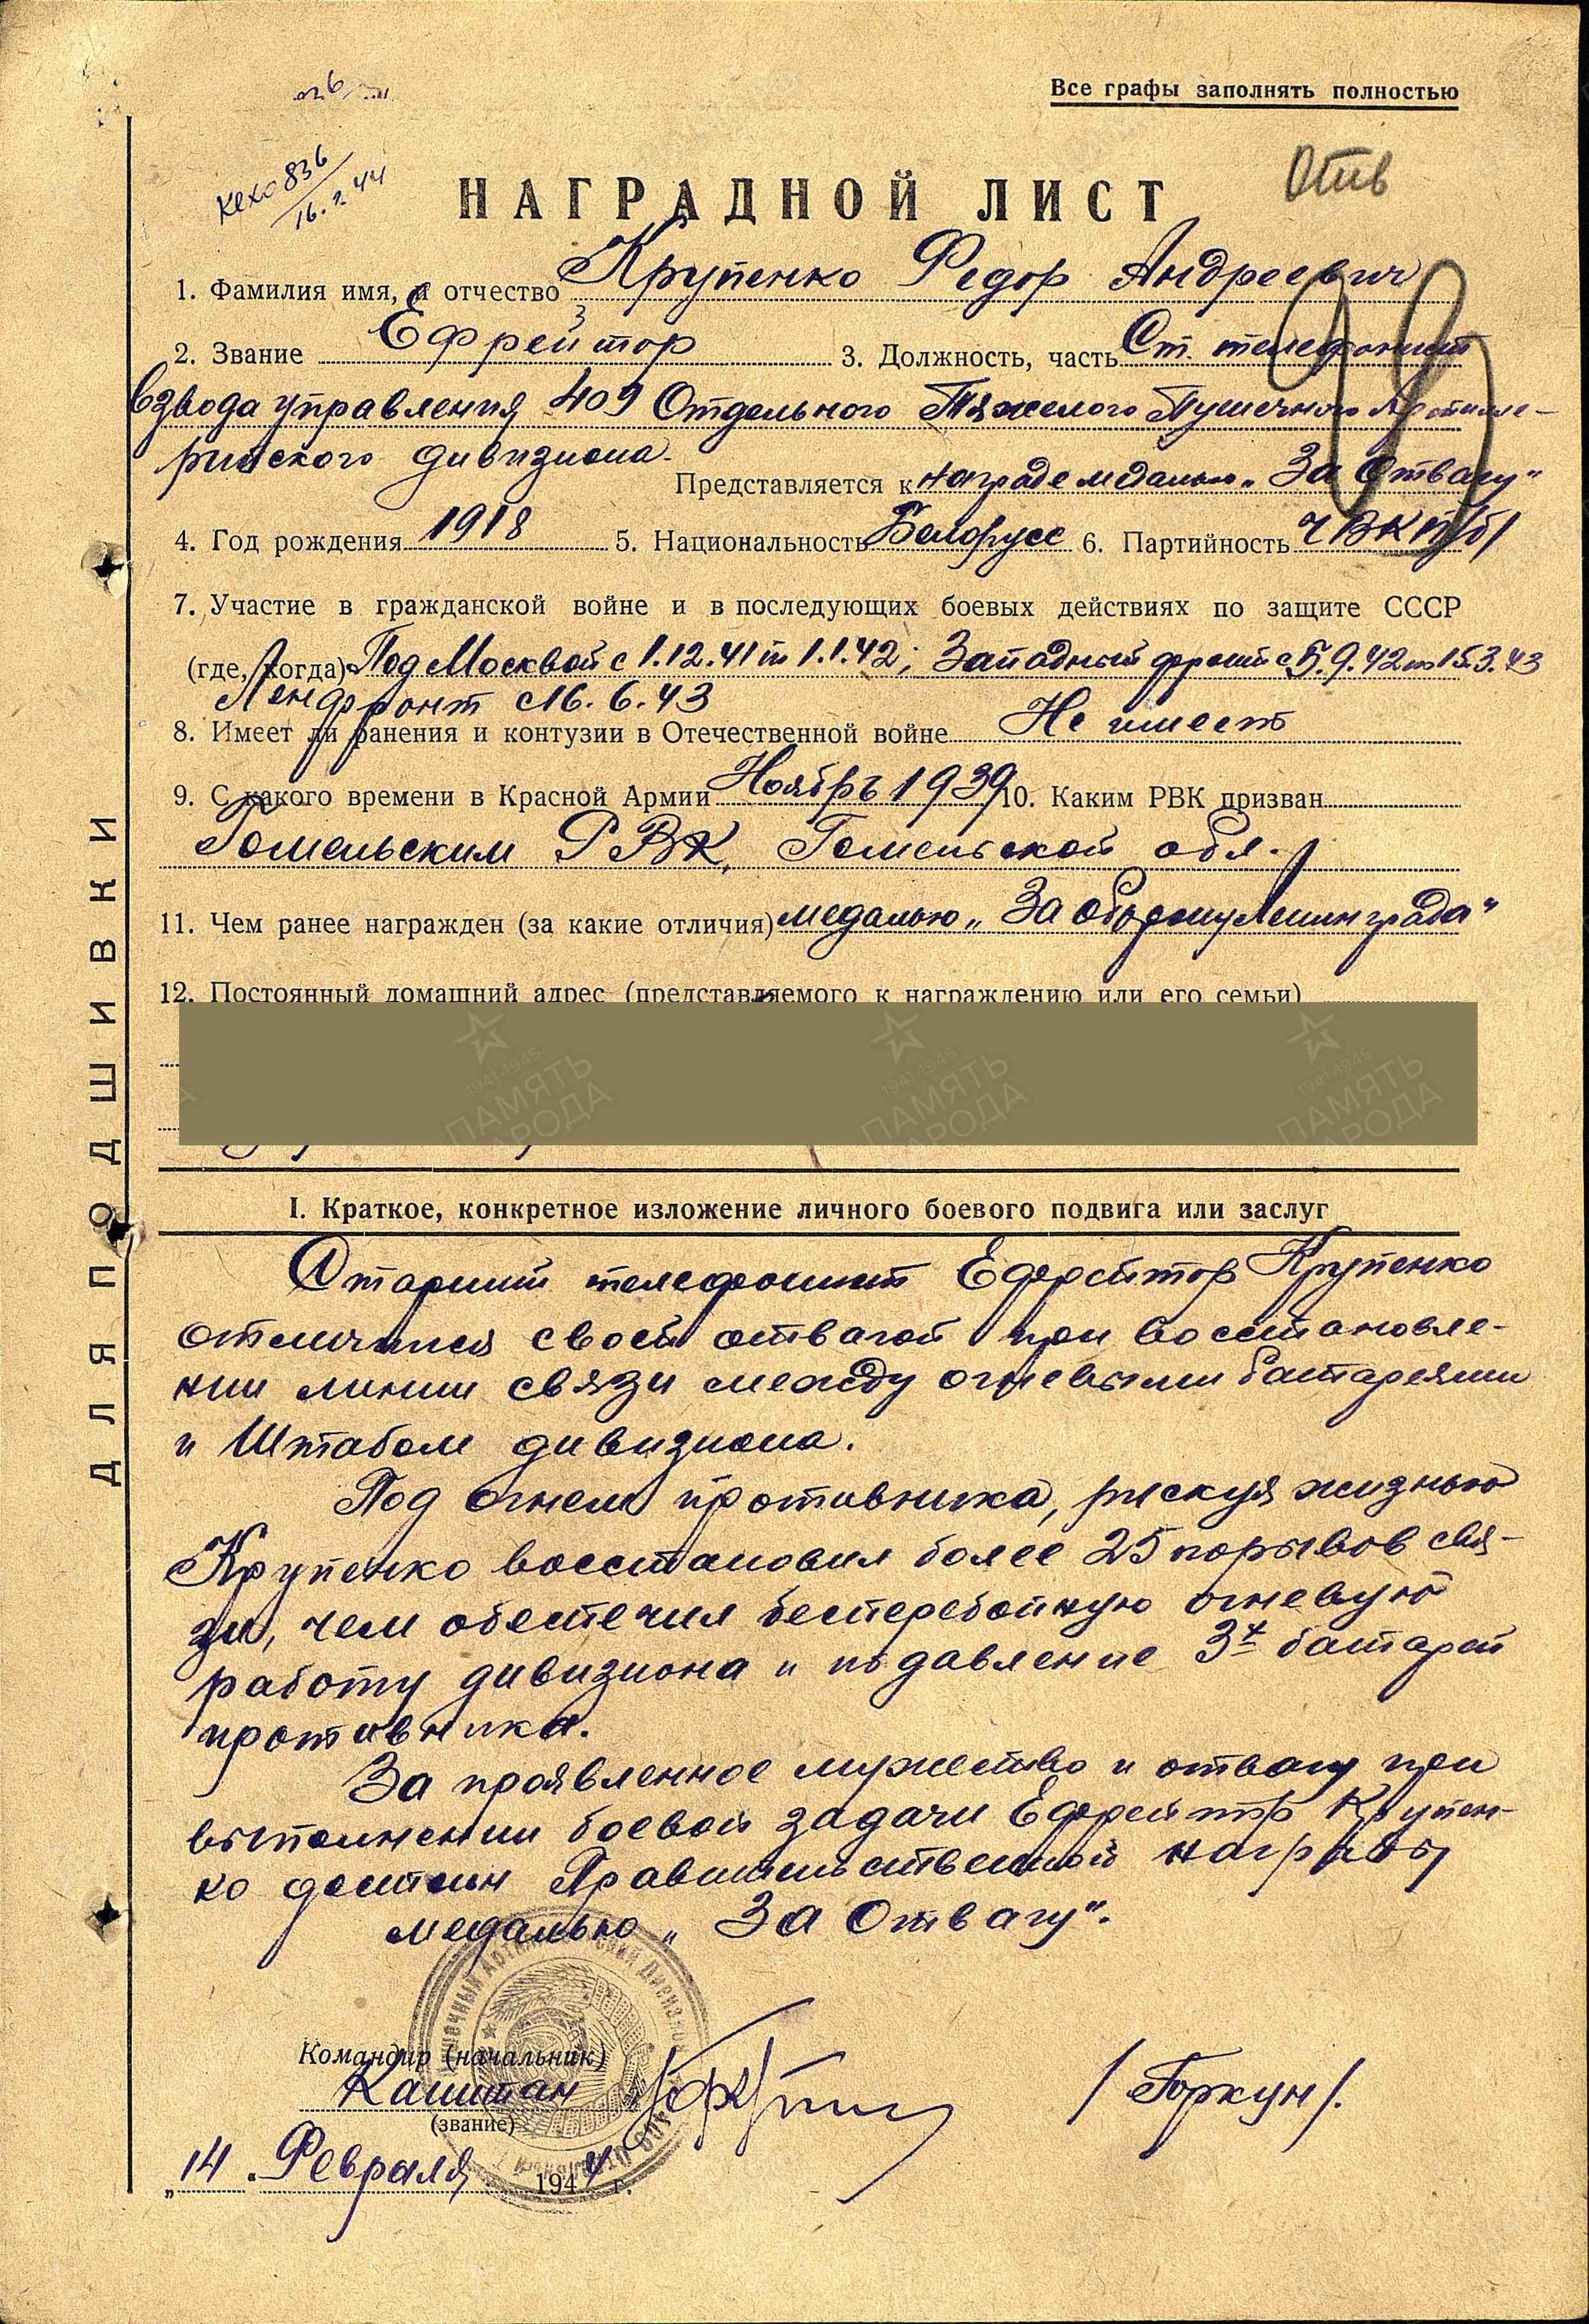 Все графы заполнять полностью
836
16.2.44
Отв
НАГРАДНОЙ ЛИСТ
1. Фамилия имя, и отчество Крупенко Федор Андреевич
2. Звание Ефрейтор 3. Должность, часть Ст. телефонист
взвода управления 409 Отдельного Тяжелого Пушечного Артилле-
рийского дивизиона.
Представляется к награде медалью „За Отвагу"
4. Год рождения 1918 5. Национальность Белорусс 6. Партийность ЧВКП/б/
7. Участие в гражданской войне и в последующих боевых действиях по защите СССР
(где, когда) Под Москвой с 1.12.41 по 1.1.42; Западный фронт с 5.9.42 по 15.3.43
Ленфронт с 16.6.43
8. Имеет ли ранения и контузии в Отечественной войне Не имеет
9. С какого времени в Красной Армии Ноябрь 1939 10. Каким РВК призван
Гомельским РВК, Гомельской обл.
11. Чем ранее награжден (за какие отличия) медалью „За оборону Ленинграда"
12. Постоянный домашний адрес (представляемого к награждению или его семьи)
I. Краткое, конкретное изложение личного боевого подвига или заслуг
Старший телефонист Ефрейтор Крупенко
отличился своей отвагой при восстановле-
нии линии связи между огневыми батареями
и Штабом дивизиона.
Под огнем противника, рискуя жизнью
Крупенко восстановил более 25 порывов свя-
зи, чем обеспечил бесперебойную огневую
работу дивизиона и подавление 3х батарей
противника.
За проявленное мужество и отвагу при
выполнении боевой задачи Ефрейтор Крупен-
ко достоин Правительственной награды
медалью „За Отвагу".
Командир (начальник)
Капитан /Горкун/.
(звание)
„14. Февраля 1944 г.
ДЛЯ ПОДШИВКИ
1941-1945
ПАМЯТЬ
НАРОДА